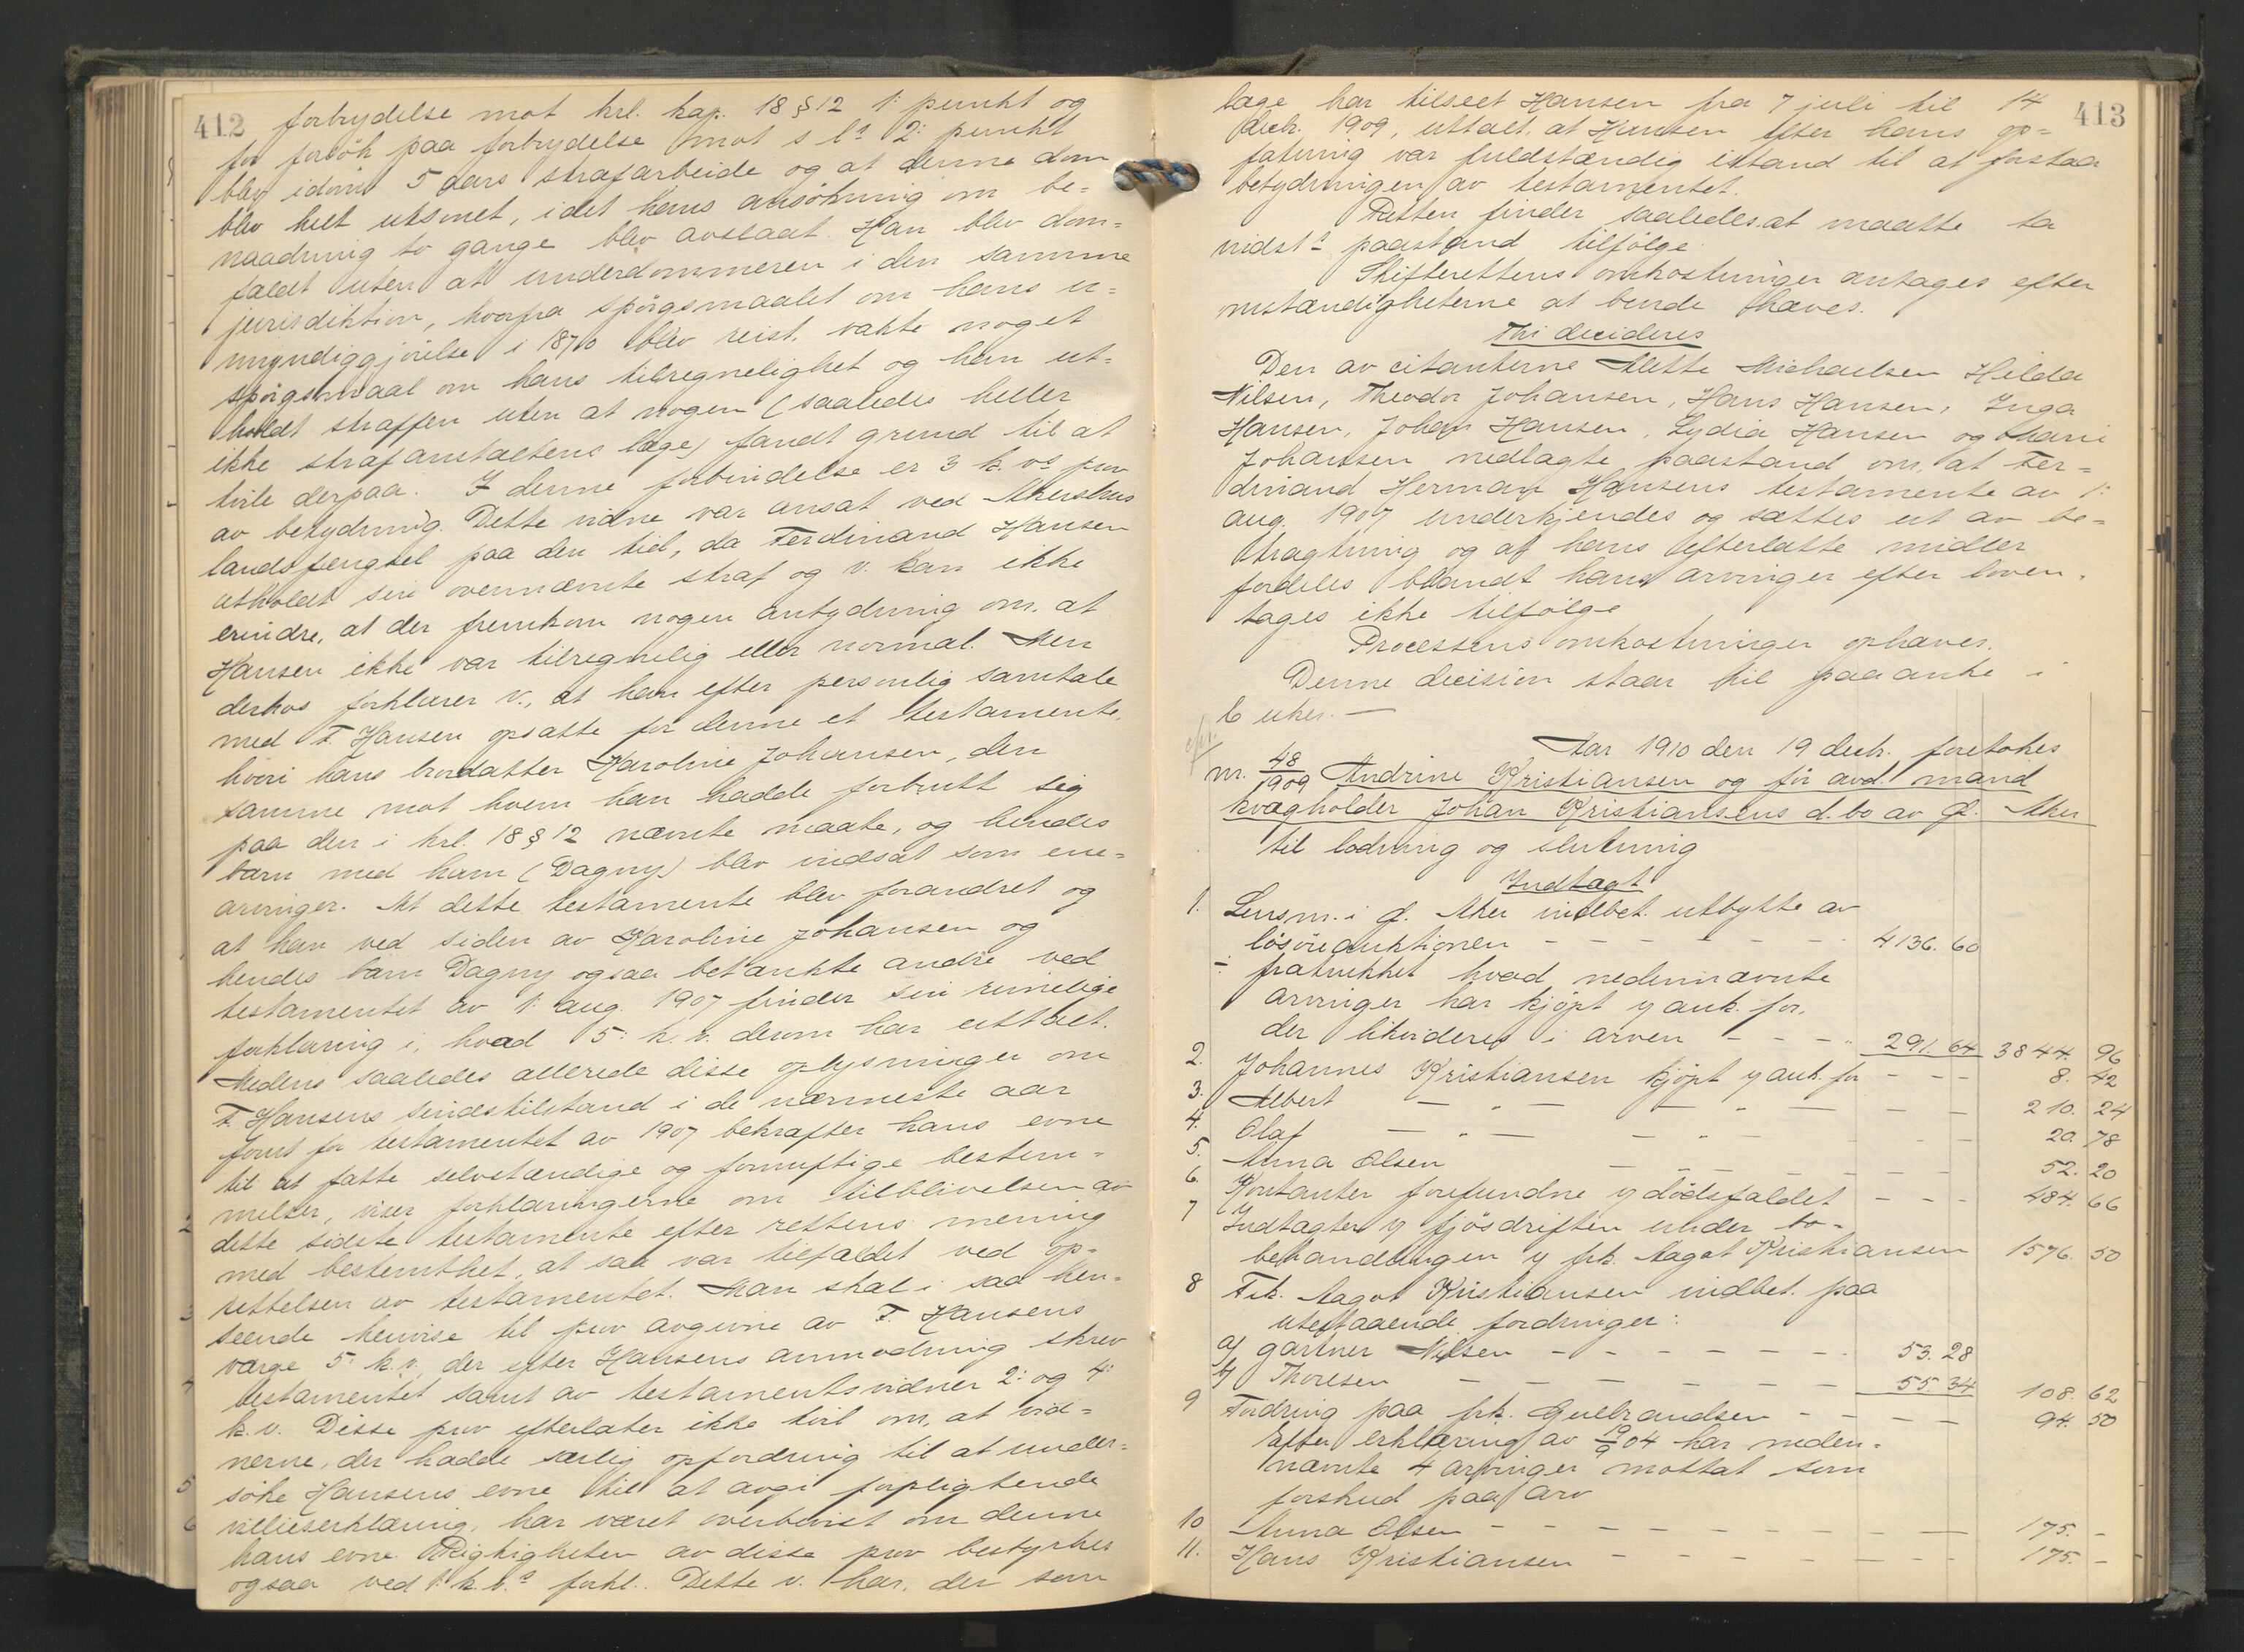 412
forbrydelse mot krl. kap. 18 § 12 1: punkt og
for forsök paa forbrydelse mot s l: 2: punkt
blev idömt 5 aars strafarbeide og at denne dom
blev helt utsonet, idet hans ansökning om be=
naadning to gange blev avslaat. Han blev dom=
fældt uten at underdommeren i den samme
jurisdiktion, hvorfra spörgsmaalet om hans u=
myndiggjörelse i 1870 blev reist, vakte noget
spörgsmaal om hans tilregnelighet og han ut=
holdt straffen uten at nogen (saaledes heller
ikke strafanstaltens læge) fandt grund til at
tvile derpaa. I denne forbindelse er 3 k. vs prov
av betydning. Dette vidne var ansat ved Akershus
landsfængsel paa den tid, da Ferdinand Hansen
utholdt sin ovennævnte straf og v. kan ikke
erindre, at der fremkom nogen antydning om, at
Hansen ikke var tilregnelig eller normal. Men
derhos forklarer v., at han efter personlig samtale
med F. Hansen opsatte for denne et testamente,
hvori hans brordatter Karoline Johansen, den
samme mot hvem han hadde forbrutt sig
paa den i krl. 18 § 12 nævnte maate, og hendes
barn med ham (Dagny) blev indsat som ene=
arvinger. At dette testamente blev forandret og
at han ved siden av Karoline Johansen og
hendes barn Dagny ogsaa betænkte andre ved
testamentet av 1: aug. 1907 finder sin rimelige
forklaring i, hvad 5: k. v. derom har uttalt.
Medens saaledes allerede disse oplysninger om
F. Hansens sindstilstand i de nærmeste aar
forut for testamentet av 1907 bekræfter hans evne
til at fatte selvstændige og fornuftige bestem=
melser, viser forklaringerne om tilblivelsen av
dette sidste testamente efter rettens mening
med bestemthet, at saa var tilfældet ved op=
rettelsen av testamentet. Man skal i saa hen=
seende henvise til prov avgivne av F. Hansens
værge 5: k. v., der efter Hansens anmodning skrev
testamentet samt av testamentsvidner 2: og 4:
k. v. Disse prov efterlater ikke tvil om, at vid=
nerne, der hadde særlig opfordring til at under=
söke Hansens evne til at avgi forpligtende
villieserklæring, har været overbevist om denne
hans evne. Rigtigheten av disse prov bestyrkes
ogsaa ved 1: k. v.s forkl. Dette v. har, der som
413
læge har tilseet Hansen fra 7 juli til 14
decbr. 1909, uttalt, at Hansen efter hans op=
fatning var fuldstændig istand til at forstaa
betydningen av testamentet.
Retten finder saaledes at maatte ta
indst: paastand tilfölge.
Skifterettens omkostninger antages efter
omstændigheterne at burde hæves.
Thi decideres
Den av citanterne Mette Michaelsen Hilda
Nilsen, Theodor Johansen, Hans Hansen, Inga
Hansen, Johan Hansen, Lydia Hansen og Marie
Johansen nedlagte paastand om, at Fer=
dinand Herman Hansens testamente av 1:
aug. 1907 underkjendes og sættes ut av be=
tragtning og at hans efterlatte midler
fordeles blandt hans arvinger efter loven,
tages ikke tilfölge
Processens omkostninger ophæves.
Denne decision staar til paaanke i
6 uker. —
Aar 1910 den 19 decbr. foretokes
nr. 48/1909 Andrine Kristiansen og för avd. mand
kvægholder Johan Kristiansens d. bo av Ø. Aker
til lodning og slutning
Indtægt
1. Lensm. i Ø. Aker indbet. utbytte av
lösöreauktionen - - - - - - - 4136. 60
÷ fratrukket hvad nedennævnte
arvinger har kjöpt v auk. for,
der likvideres i arven - - - - 291. 64 3844. 96
2. Johannes Kristiansen kjöpt v auk. for - - - 8. 42
3. Albert — „ — — „ — — — 210. 24
4. Olaf — „ — — „ — - - 20. 78
5. Anna Olsen — — — — — — 52. 20
6. Kontanter forefundne v dödsfaldet - - - 484. 66
7 Indtægter v fjösdriften under bo=
behandlingen v frk. Aagot Kristiansen 1576. 50
8 Frk. Aagot Kristiansen indbet. paa
utestaaende fordringer:
a/ gartner Nilsen - - - - - - - 53. 28
b/ Thoresen — — — — — — 55. 34 108. 62
9 Fordring paa frk. Gulbrandsen - - - - 94. 50
Efter erklæring av 19/9 04 har neden=
nævnte 4 arvinger mottat som
forskud paa arv
10 Anna Olsen - - - - - - - - - 175. -
11. Hans Kristiansen - - - - - - - 175. -